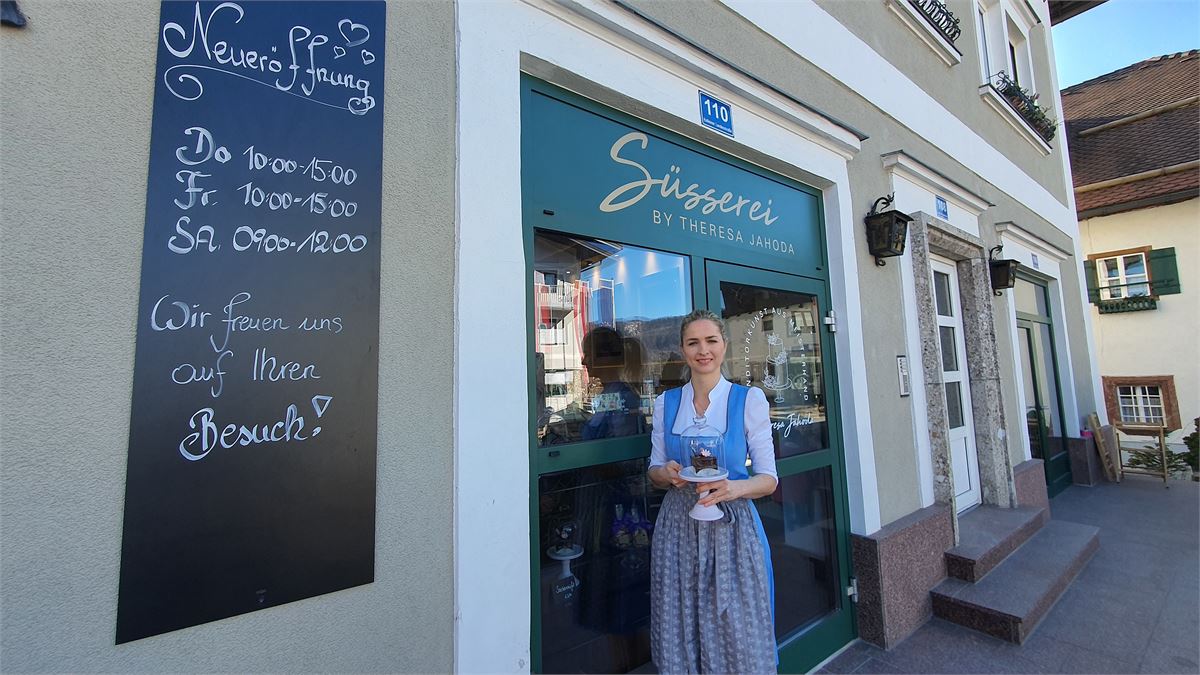 Neueröffnung
Do 10:00-15:00
Fr. 10:00-15:00
SA. 09:00-12:00
Wir freuen uns
auf Ihren
Besuch!
110
Süsserei
BY THERESA JAHODA
108